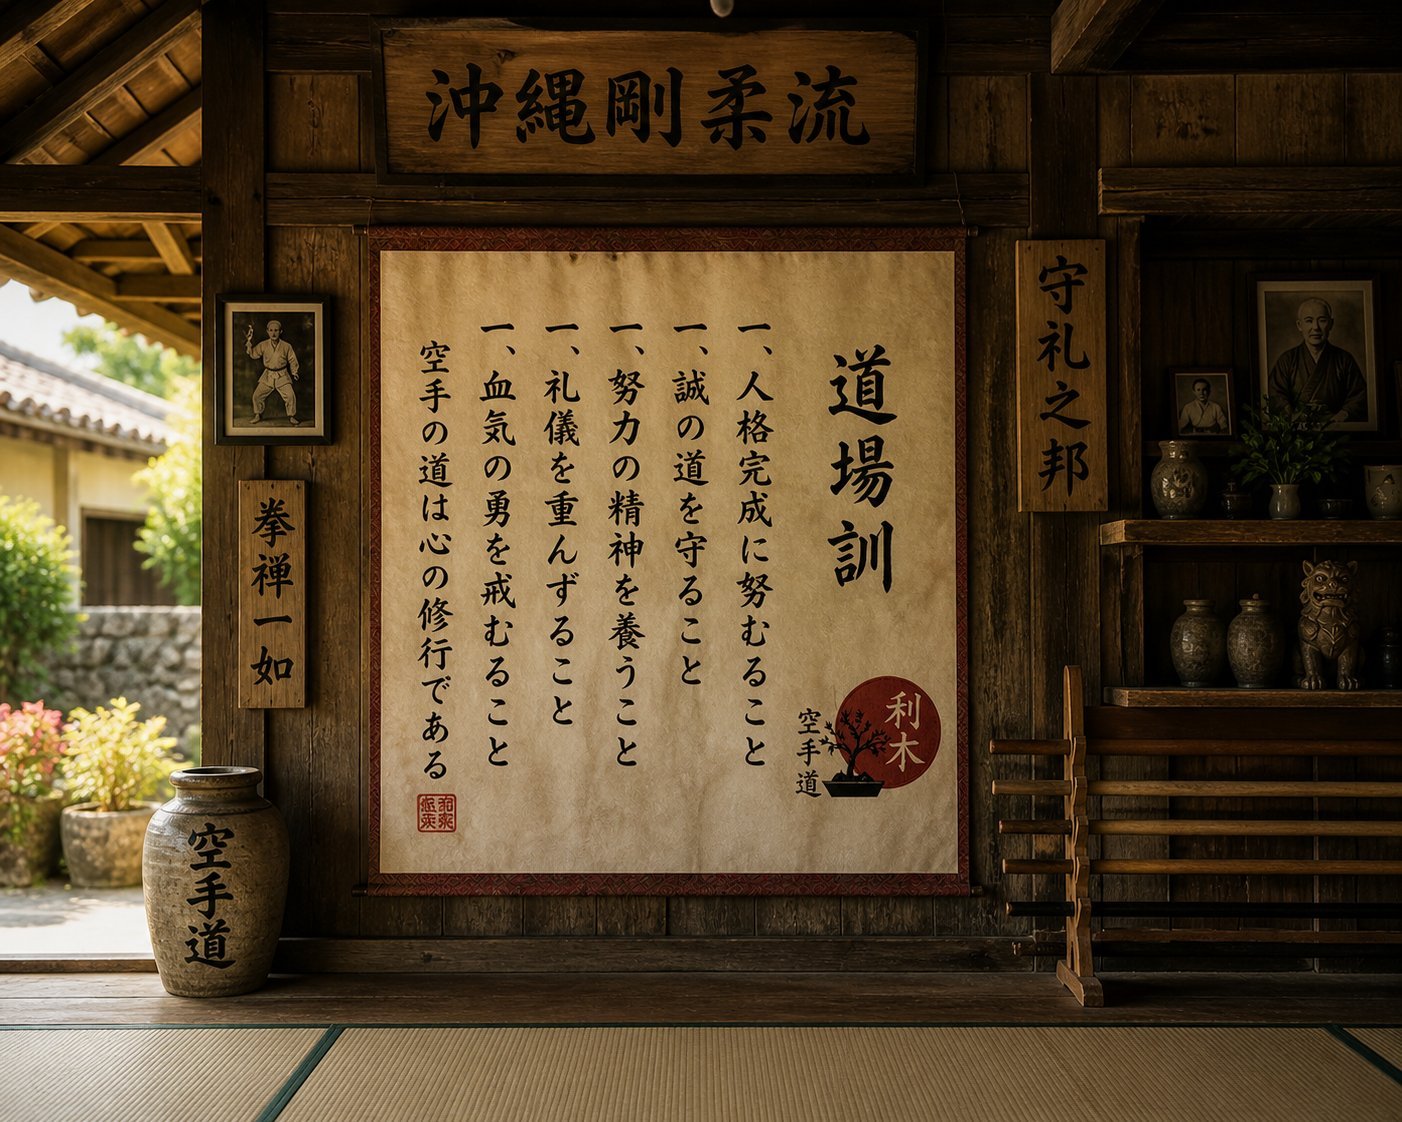 沖縄剛柔流
道場訓
一、人格完成に努むること
一、誠の道を守ること
一、努力の精神を養うこと
一、礼儀を重んずること
一、血気の勇を戒むること
空手の道は心の修行である
利木
空手道
守礼之邦
拳禅一如
空手道